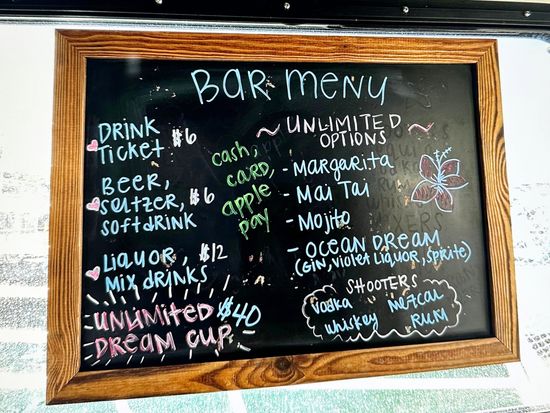 BAR MENU
DRINK
TICKET $6
BEER,
SELTZER, $6
SOFT DRINK
LIQUOR, $12
MIX DRINKS
UNLIMITED $40
DREAM CUP
cash,
CARD,
apple
pay
~ UNLIMITED ~
OPTIONS
- MARGARITA
- MAI TAI
- MOJITO
- OCEAN DREAM
(GIN, VIOLET LIQUOR, SPRITE)
SHOOTERS
VODKA MEZCAL
WHISKEY RUM